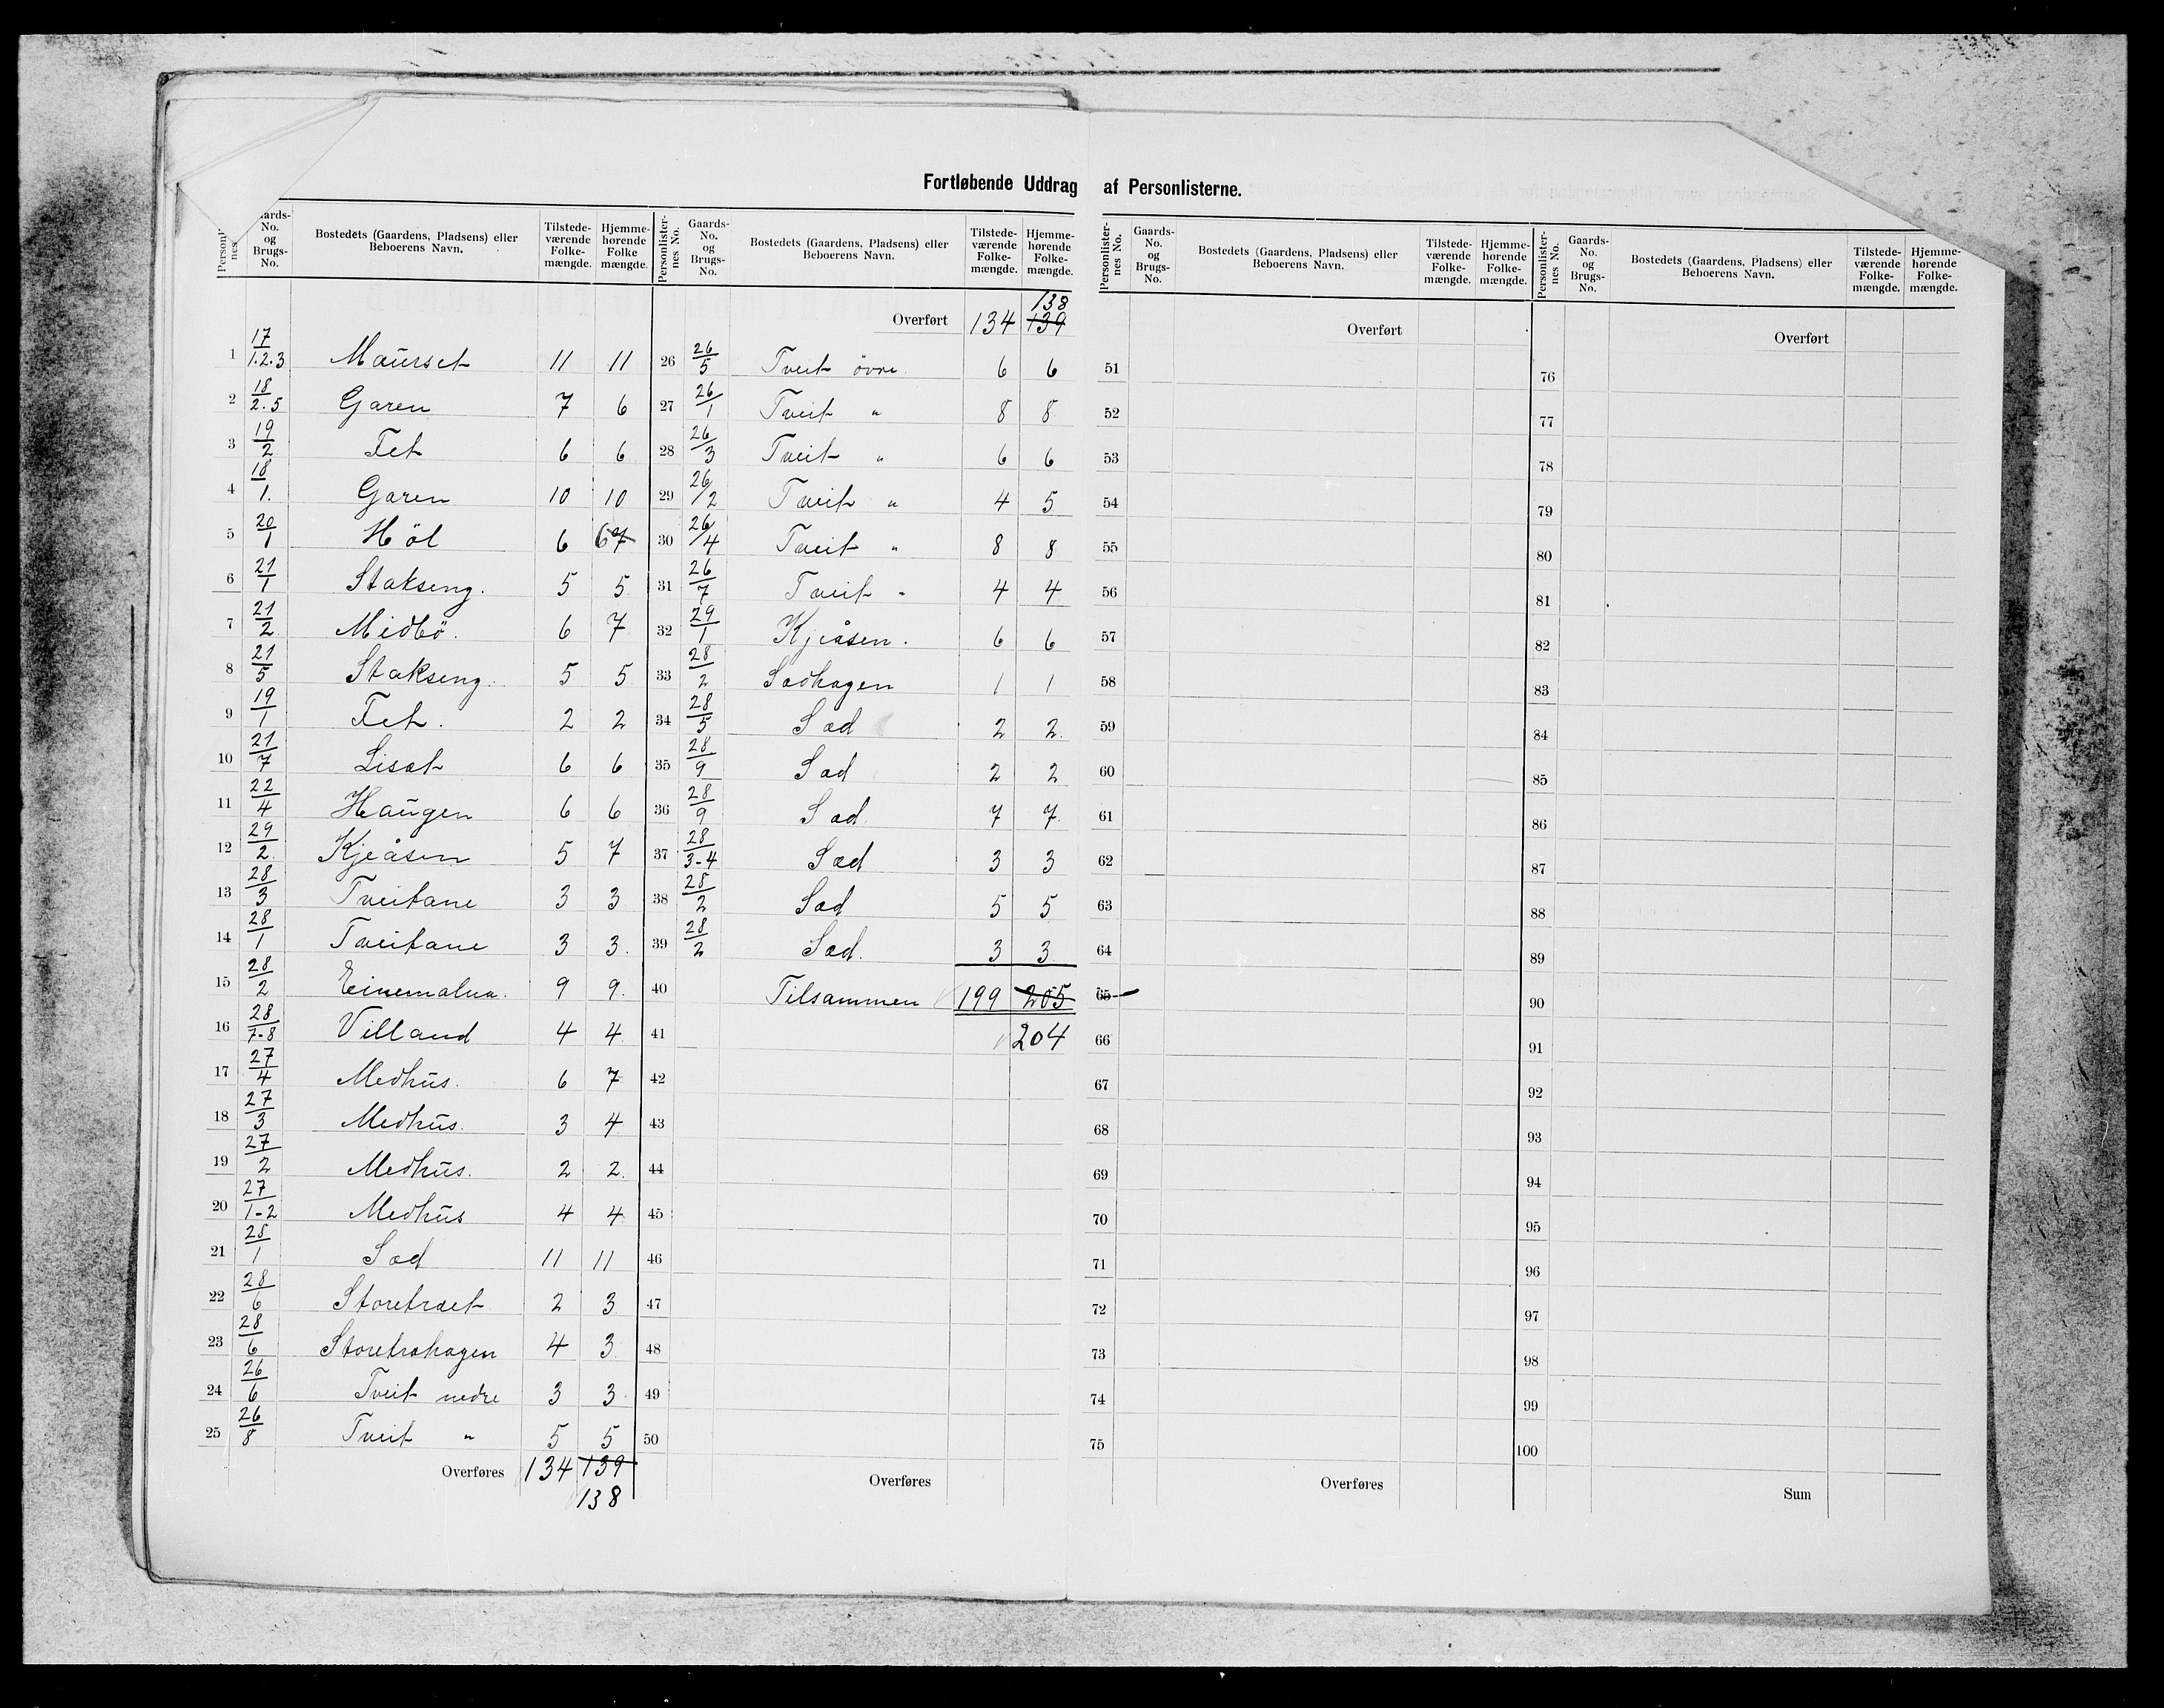 Fortløbende Uddrag af Personlisterne.
Gaards-No. og Brugs-No. Bostedets (Gaardens, Pladsens) eller Beboerens Navn. Tilstede-værende Folke-mængde. Hjemme-hørende Folke mængde.
1 17/1.2.3 Maurset 11 11
2 18/2.5 Garen 7 6
3 19/2 Fet 6 6
4 18/1. Garen 10 10
5 20/1 Höl 6 6 7
6 21/1 Stakseng. 5 5
7 21/2 Midbö. 6 7
8 21/5 Stakseng. 5 5
9 19/1 Fet. 2 2
10 21/7 Liset 6 6
11 22/4 Haugen 6 6
12 29/2 Kjeåsen 5 7
13 28/3 Tveitane 3 3
14 28/1 Tveitane 3 3.
15 28/2 9 9.
16 28/7-8 Villand 4 4
17 27/4 Medhus. 6 7
18 27/3 Medhus. 3 4
19 27/2 Medhus. 2 2.
20 27/1-2 Medhus 4 4
21 28/1 Sæd 11 11
22 28/6 Storetræet 2 3
23 28/6 Storetræhagen 4 3
24 26/6 Tveit nedre 3 3
25 26/8 Tveit " 5 5
Overføres 134 139
138
Personlister-nes No. Gaards-No. og Brugs-No. Bostedets (Gaardens, Pladsens) eller Beboerens Navn. Tilstede-værende Folke-mængde. Hjemme-hørende Folke-mængde.
138
Overført 134 139
26 26/5 Tveit övre 6 6
27 26/1 Tveit " 8 8
28 26/3 Tveit " 6 6
29 26/2 Tveit " 4 5
30 26/4 Tveit " 8 8
31 26/7 Tveit " 4 4
32 29/1 Kjeåsen. 6 6
33 28/2 Sædhagen 1 1
34 28/5 Sæd 2 2.
35 28/9 Sæd 2 2
36 28/9 Sæd 7 7.
37 28/3-4 Sæd 3 3
38 28/2 Sæd 5 5
39 28/2 Sæd. 3 3
40 Tilsammen 199 205
41 204
42
43
44
45
46
47
48
49
50
Overføres
Personlister-nes No. Gaards-No. og Brugs-No. Bostedets (Gaardens, Pladsens) eller Beboerens Navn. Tilstede-værende Folke-mængde. Hjemme-hørende Folke-mængde.
Overført
51
52
53
54
55
56
57
58
59
60
61
62
63
64
65
66
67
68
69
70
71
72
73
74
75
Overføres
Personlister-nes No. Gaards-No. og Brugs-No. Bostedets (Gaardens, Pladsens) eller Beboerens Navn. Tilstede-værende Folke-mængde. Hjemme-hørende Folke-mængde.
Overført
76
77
78
79
80
81
82
83
84
85
86
87
88
89
90
91
92
93
94
95
96
97
98
99
100
Sum